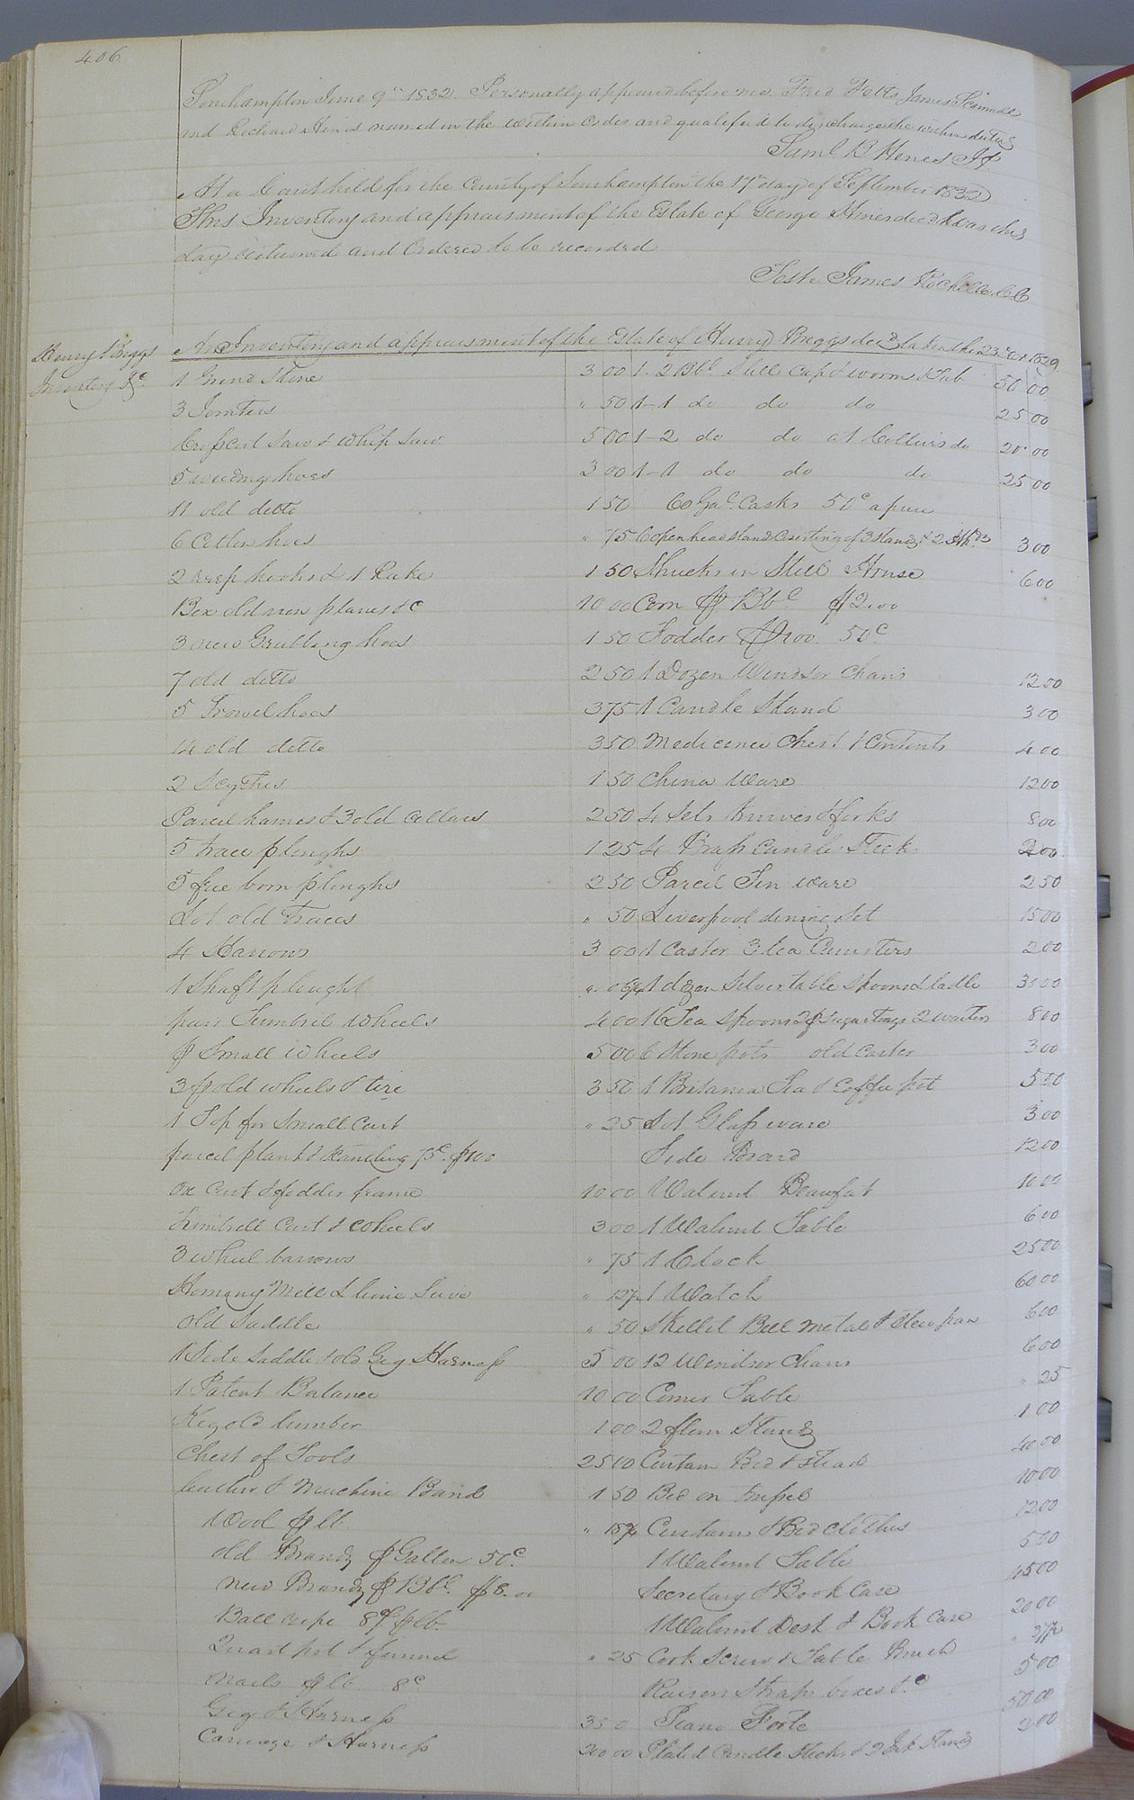 406
Southampton June 9th 1832. Personally appeared before me Fred Fetts James
and Richard Hines named in the within Order and qualified to discharge the within duties
Saml B Hines JP
At a Court held for the County of Southampton the 17th day of September 1832
This Inventory and appraisment of the Estate of George Hines decd was this
day returned and Ordered to be recorded
Teste James Rochelle C C
Henry Briggs
Inventory &c
An Inventory and appraisment of the Estate of Henry Briggs decd taken the 23d Oct 1829
1 Grind Stone 3 00
3 Jointers " 50
Crosscut Saw & Whip Saw 5 00
5 weeding hoes 3 00
11 old ditto 1 50
6 Cotton hoes " 75
2 reap hooks & 1 Rake 1 50
Box old iron planes &c 10 00
3 new Grubbing hoes 1 50
7 old ditto 2 50
5 Trowel hoes 3 75
14 old ditto 3 50
2 Scythes 1 50
Parcel hames & 3 old Collars 2 50
5 trace ploughs 1 25
5 free born ploughs 2 50
Lot old Traces " 50
4 Harrows 3 00
1 Shaft plought
pair Tumbril Wheels 4 00
pr Small Wheels 5 00
3 pr old wheels & tire 3 50
1 Top for Small Cart " 25
parcel plank & Scantling 75c pr 100
Ox Cart & fodder frame 10 00
Tumbrell Cart & wheels 3 00
3 wheel barrows " 75
Homany Mill & lime Sieve " 12½
Old Saddle " 50
1 Side Saddle & old Gig Harness 5 00
1 Patent Balance 10 00
Keg old lumber 1 00
Chest of Tools 25 00
leather & Machine Band 1 50
Wool pr lb
old Brandy pr Gallon 50c
New Brandy pr Bbl. $8.00
Bale rope 8c pr lb
Quart pot & funnel " 25
Nails pr lb 8c
Gig & Harness 35 0
Carriage & Harness 200 00
1-2 Bbl Still Cap & worm & Tub 30 00
1-1 do do do 25 00
1-2 do do at Collins do 20 00
1-1 do do do 25 00
60 Gal. Casks 50c a piece
6 open head Stands 3 00
Shucks in Still House 6 00
Corn pr Bbl $2.00
Fodder pr 100 50c
1 Dozen Windsor Chairs 12 00
1 Candle Stand 3 00
Medicine Chest & Contents 4 00
China Ware 12 00
4 Sets knives & forks 8 00
4 Brass Candle Stick 2 00
Parcel Tin ware 2 50
Liverpool dining Set 15 00
1 Castor 3 tea Canisters 2 00
1 dozen Silver table Spoons & ladle 30 00
16 Tea Spoons 2 pr Sugar tongs 2 waiters 8 00
6 Stone pots old Castor 3 00
1 Britania Tea & Coffee pot 5 00
Lot Glass ware 3 00
Side Board 12 00
1 Walnut Beaufat 10 00
1 Walnut Table 6 00
1 Clock 25 00
1 Watch 60 00
Skillit Bell metal & Stew pan 6 00
12 Windsor Chairs 6 00
Corner Table " 25
2 flower Stands 1 00
Curtain Bed & Stead 40 00
Bed on Trussel 10 00
Curtains & Bed Clothes 12 00
1 Walnut Table 5 00
Secretary & Book Case 45 00
1 Walnut Desk & Book Case 20 00
Cork Screw & Table Brush
Raison Strap boxes &c 5 00
Piano Forte 50 00
Plated Candle Sticks & 2 Ink Stands 2 00